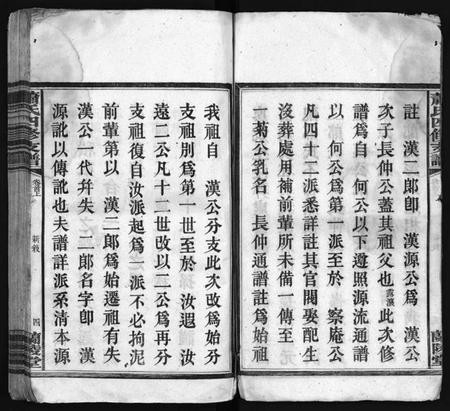 蕭氏四修支譜
蘭陵堂
註 漢二郎卽 漢源公爲 漢公
次子長仲公蓋其祖父也 此次修
譜爲自 何公以下遵照源流通譜
以 何公爲第一派至於 察庵公
凡四十二派悉詳註其官閥娶配生
沒葬處用補前輩所未備一傳至
一菊公乳名 長仲通譜註爲始祖
我祖自 漢公分支此次改爲始分
支祖別爲第一世至於 汝遐 汝
遠二公凡十二世改以二公爲再分
支祖復自汝派起爲一派不必拘泥
前輩第以 漢二郎爲始遷祖有失
漢公一代幷失 二郎名字卽 漢
源訛以傳訛也夫譜詳派系清本源
蕭氏四修支譜
卷首上
新敘
四
蘭陵堂